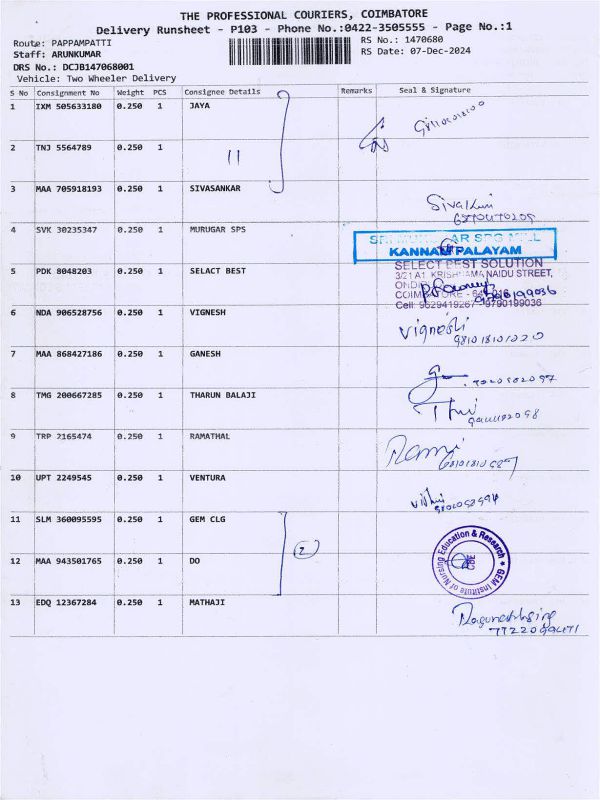 THE PROFESSIONAL COURIERS, COIMBATORE
Delivery Runsheet - P103 - Phone No.:0422-3505555 - Page No.:1
Route: PAPPAMPATTI RS No.: 1470680
Staff: ARUNKUMAR RS Date: 07-Dec-2024
DRS No.: DCJB147068001
Vehicle: Two Wheeler Delivery
S No Consignment No Weight PCS Consignee Details Remarks Seal & Signature
1 IXM 505633180 0.250 1 JAYA
2 TNJ 5564789 0.250 1
3 MAA 705918193 0.250 1 SIVASANKAR
4 SVK 30235347 0.250 1 MURUGAR SPS
KANNAMPALAYAM
5 PDK 8048203 0.250 1 SELACT BEST
SELECT BEST SOLUTION
3/21A1, KRISHNAMA NAIDU STREET,
Cell: 9629419267 9790199036
6 NDA 906528756 0.250 1 VIGNESH
Vignesh
7 MAA 868427186 0.250 1 GANESH
8 TMG 200667285 0.250 1 THARUN BALAJI
9 TRP 2165474 0.250 1 RAMATHAL
10 UPT 2249545 0.250 1 VENTURA
11 SLM 360095595 0.250 1 GEM CLG
2
GEM Institute of Nursing Education & Research
CBE
12 MAA 943501765 0.250 1 DO
13 EDQ 12367284 0.250 1 MATHAJI